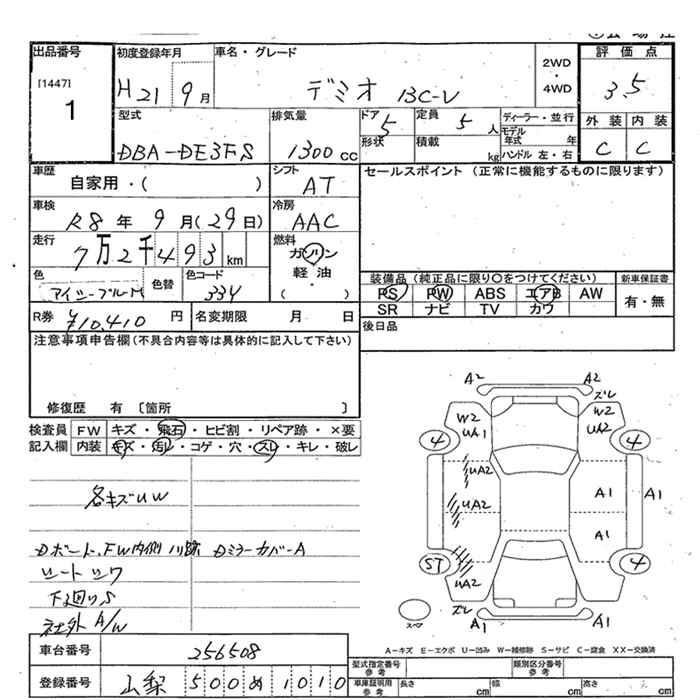 出品番号
[1447]
1
初度登録年月
H21 9月
車名・グレード
デミオ 13C-V
2WD
・
4WD
評価点
3.5
型式
DBA-DE3FS
排気量
1300cc
ドア 5
形状
定員 5人
積載 kg
ディーラー・並行
モデル年式 年
ハンドル 左・右
外装 内装
C C
車歴
自家用・( )
シフト
AT
セールスポイント (正常に機能するものに限ります)
車検
R8年9月(29日)
冷房
AAC
走行
7万2千493km
燃料
ガソリン
軽油・
( )
色
アイシーブルーM
色替
色コード
33Y
装備品 (純正品に限り○をつけてください)
PS PW ABS エアB AW
SR ナビ TV カワ
新車保証書
有・無
R券 ¥10,410 円
名変期限 月 日
後日品
注意事項申告欄(不具合内容等は具体的に記入して下さい)
修復歴 有 〔箇所 〕
検査員記入欄
FW キズ・飛石・ヒビ割・リペア跡・×要
内装 キズ・汚レ・コゲ・穴・スレ・キレ・破レ
各キズUW
Dボード、FW内側ノリ跡 DミラーカバーA
シートシワ
下廻りS
社外A/W
A2 A2
スレ
W2 UA1
W2 UA2
4 4
UA2
UA2
UA2
A1 A1
A1
ST 4
スレ
A1 A1
スペア
A-キズ E-エクボ U-凹み W-補修跡 S-サビ C-腐食 XX-交換済
車台番号
256508
登録番号
山梨 500 め 1010
型式指定番号
参考
類別区分番号
参考
車庫証明用
参考
長さ cm
幅 cm
高さ cm